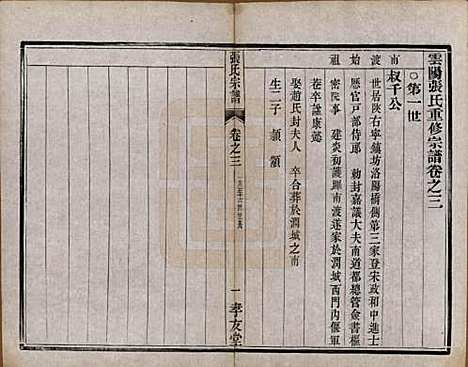 雲陽張氏重修宗譜卷之三
○第一世
南 叔千公
渡 世居陝右寧鎮坊洛陽橋側第三家登宋政和中進士
始 懸官戶部侍郎 勅封嘉議大夫南道都總管僉書樞
祖 密院事 建炎初護蹕南渡遂家於潤城西門內偃軍
巷卒諡康懿
娶趙氏封夫人 卒合葬於潤城之南
生二子 顙 頟
張氏宗譜
卷之三
一
孝友堂